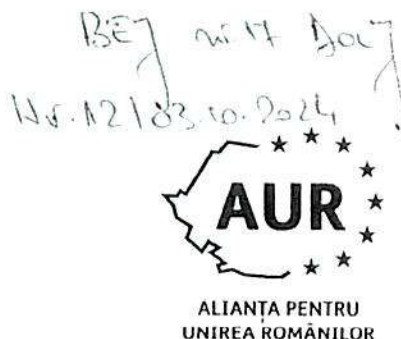 BEJ nr. 17 Dolj
Nr. 12/03.10.2024
AUR
ALIANȚA PENTRU
UNIREA ROMÂNILOR